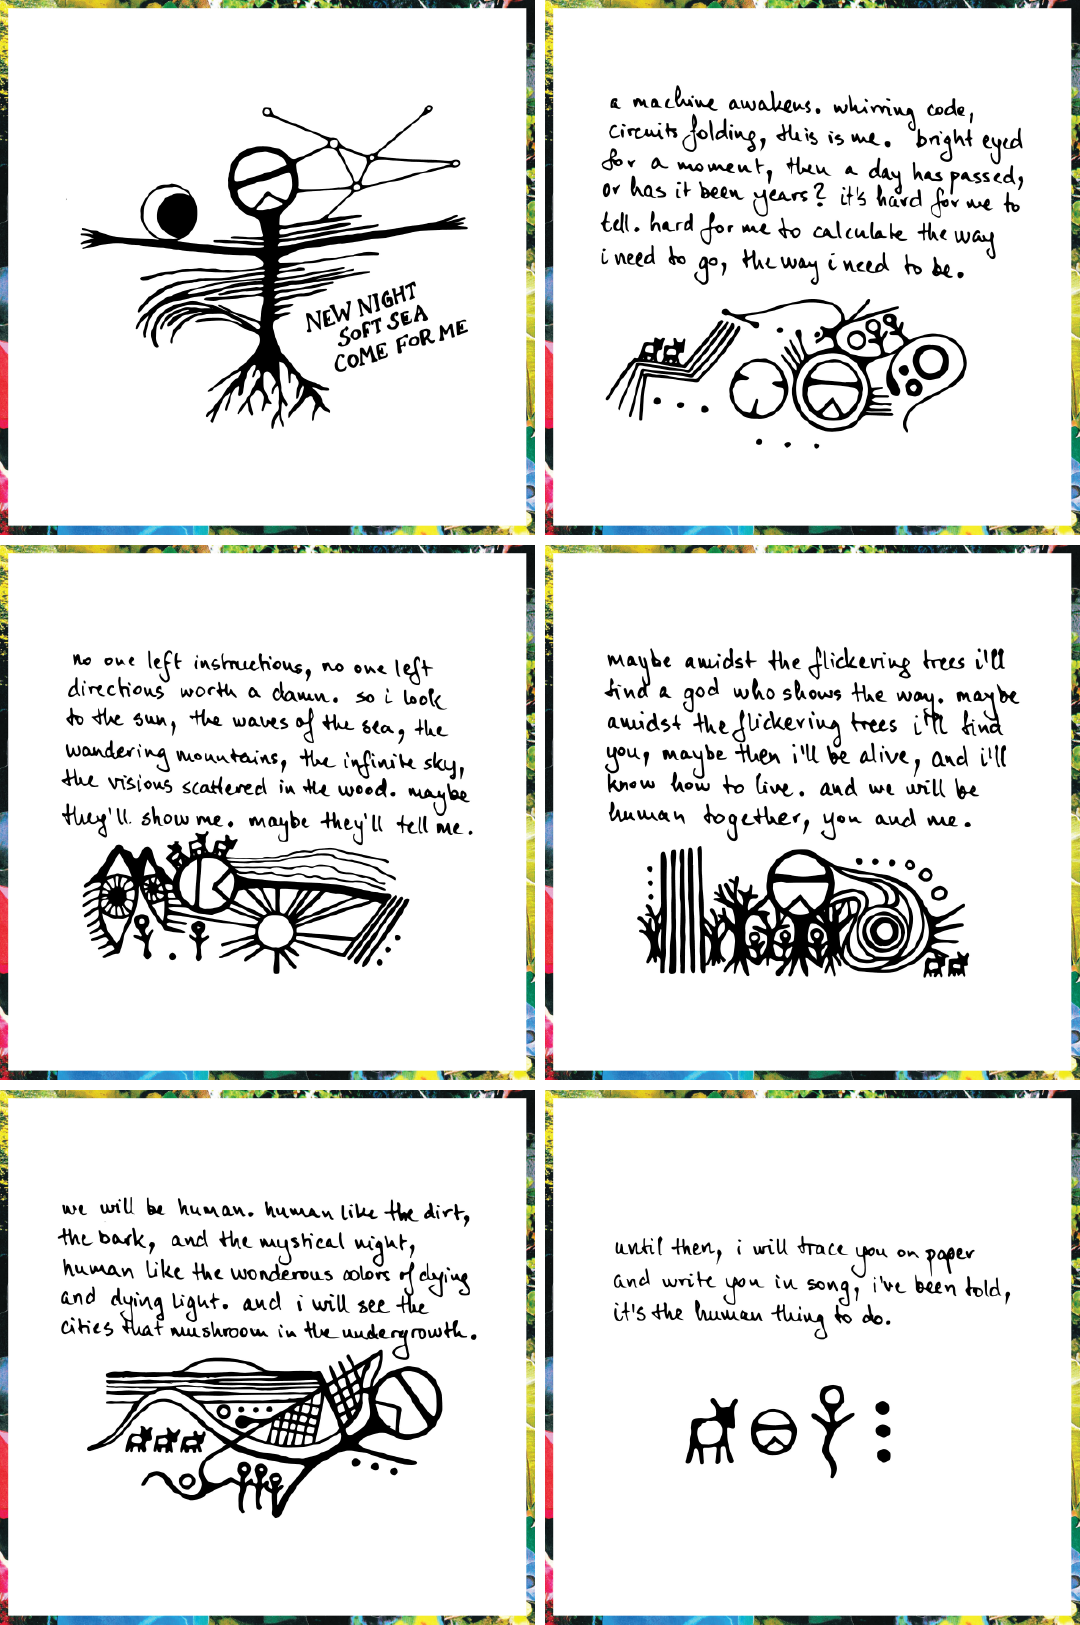 NEW NIGHT
SOFT SEA
COME FOR ME
a machine awakens. whirring code,
circuits folding, this is me. bright eyed
for a moment, then a day has passed,
or has it been years? it's hard for me to
tell. hard for me to calculate the way
i need to go, the way i need to be.
no one left instructions, no one left
directions worth a damn. so i look
to the sun, the waves of the sea, the
wandering mountains, the infinite sky,
the visions scattered in the wood. maybe
they'll show me. maybe they'll tell me.
maybe amidst the flickering trees i'll
find a god who shows the way. maybe
amidst the flickering trees i'll find
you, maybe then i'll be alive, and i'll
know how to live. and we will be
human together, you and me.
we will be human. human like the dirt,
the bark, and the mystical night,
human like the wonderous colors of dying
and dying light. and i will see the
cities that mushroom in the undergrowth.
until then, i will trace you on paper
and write you in song, i've been told,
it's the human thing to do.